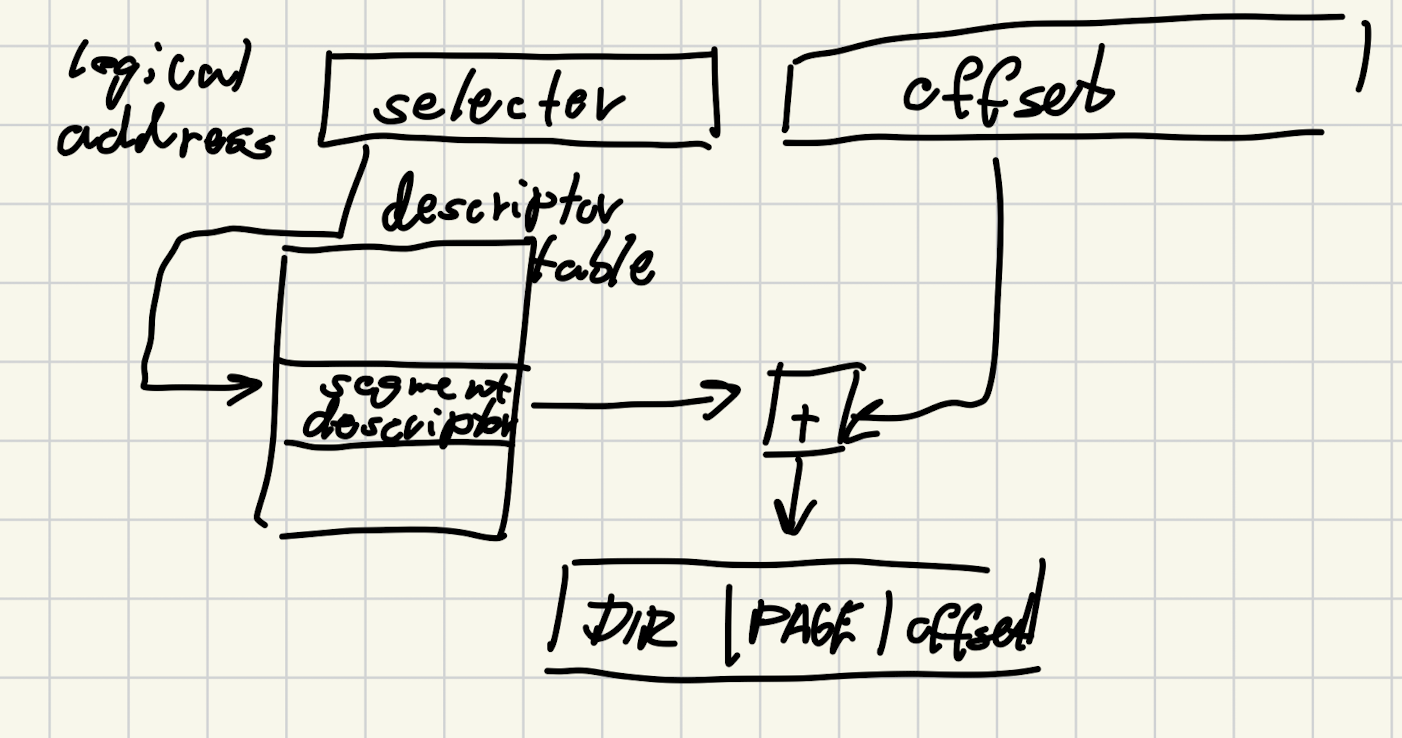 logical
address
selector
offset
descriptor
table
segment
descriptor
+
DIR | PAGE | offset